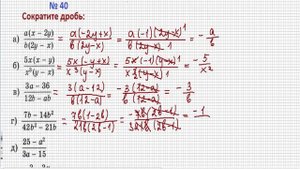 № 40
Сократите дробь:
а) a(x − 2y) / b(2y − x) = a(-2y+x) / b(2y-x) = a(-1)(2y-x)¹ / b(2y-x) 1 = - a/b
б) 5x(x − y) / x³(y − x) = 5x(-y+x) / x³(y-x) = 5x(-1)(y-x)¹ / x³(y-x) 1 = - 5/x²
в) 3a − 36 / 12b − ab = 3(a-12) / b(12-a) = -3(12-a) / b(12-a) = - 3/b
г) 7b − 14b² / 42b² − 21b = 7b(1-2b) / 21b(2b-1) = -7b(2b-1) / 321b(2b-1) = -1
д) 25 − a² / 3a − 15